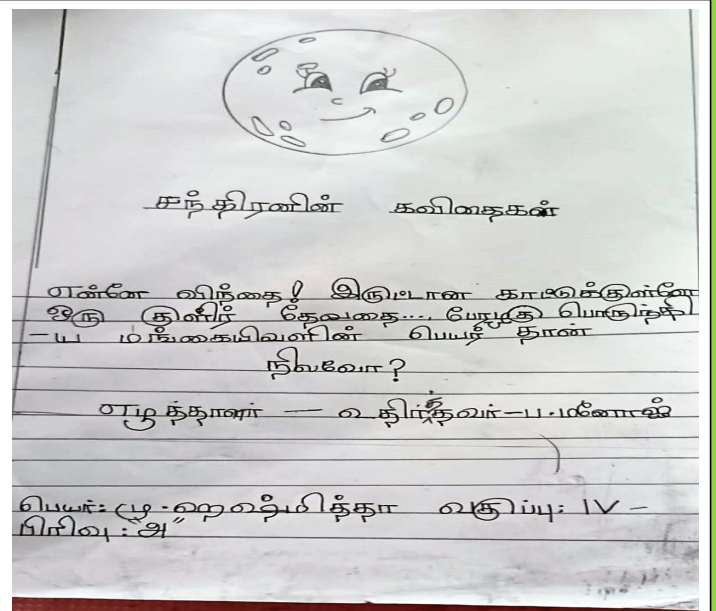 சந்திரனின் கவிதைகள்
என்னே விந்தை! இருட்டான காட்டுக்குள்ளே
ஒரு குளிர் தேவதை... பேரழகு பொருந்தி
-ய மங்கையிவளின் பெயர் தான்
நிலவோ?
எழுத்தாளர் — உதிர்த்தவர்-ப.மனோஜ்
பெயர்: மு.ஹேஷ்மித்தா வகுப்பு: IV -
பிரிவு: "அ"